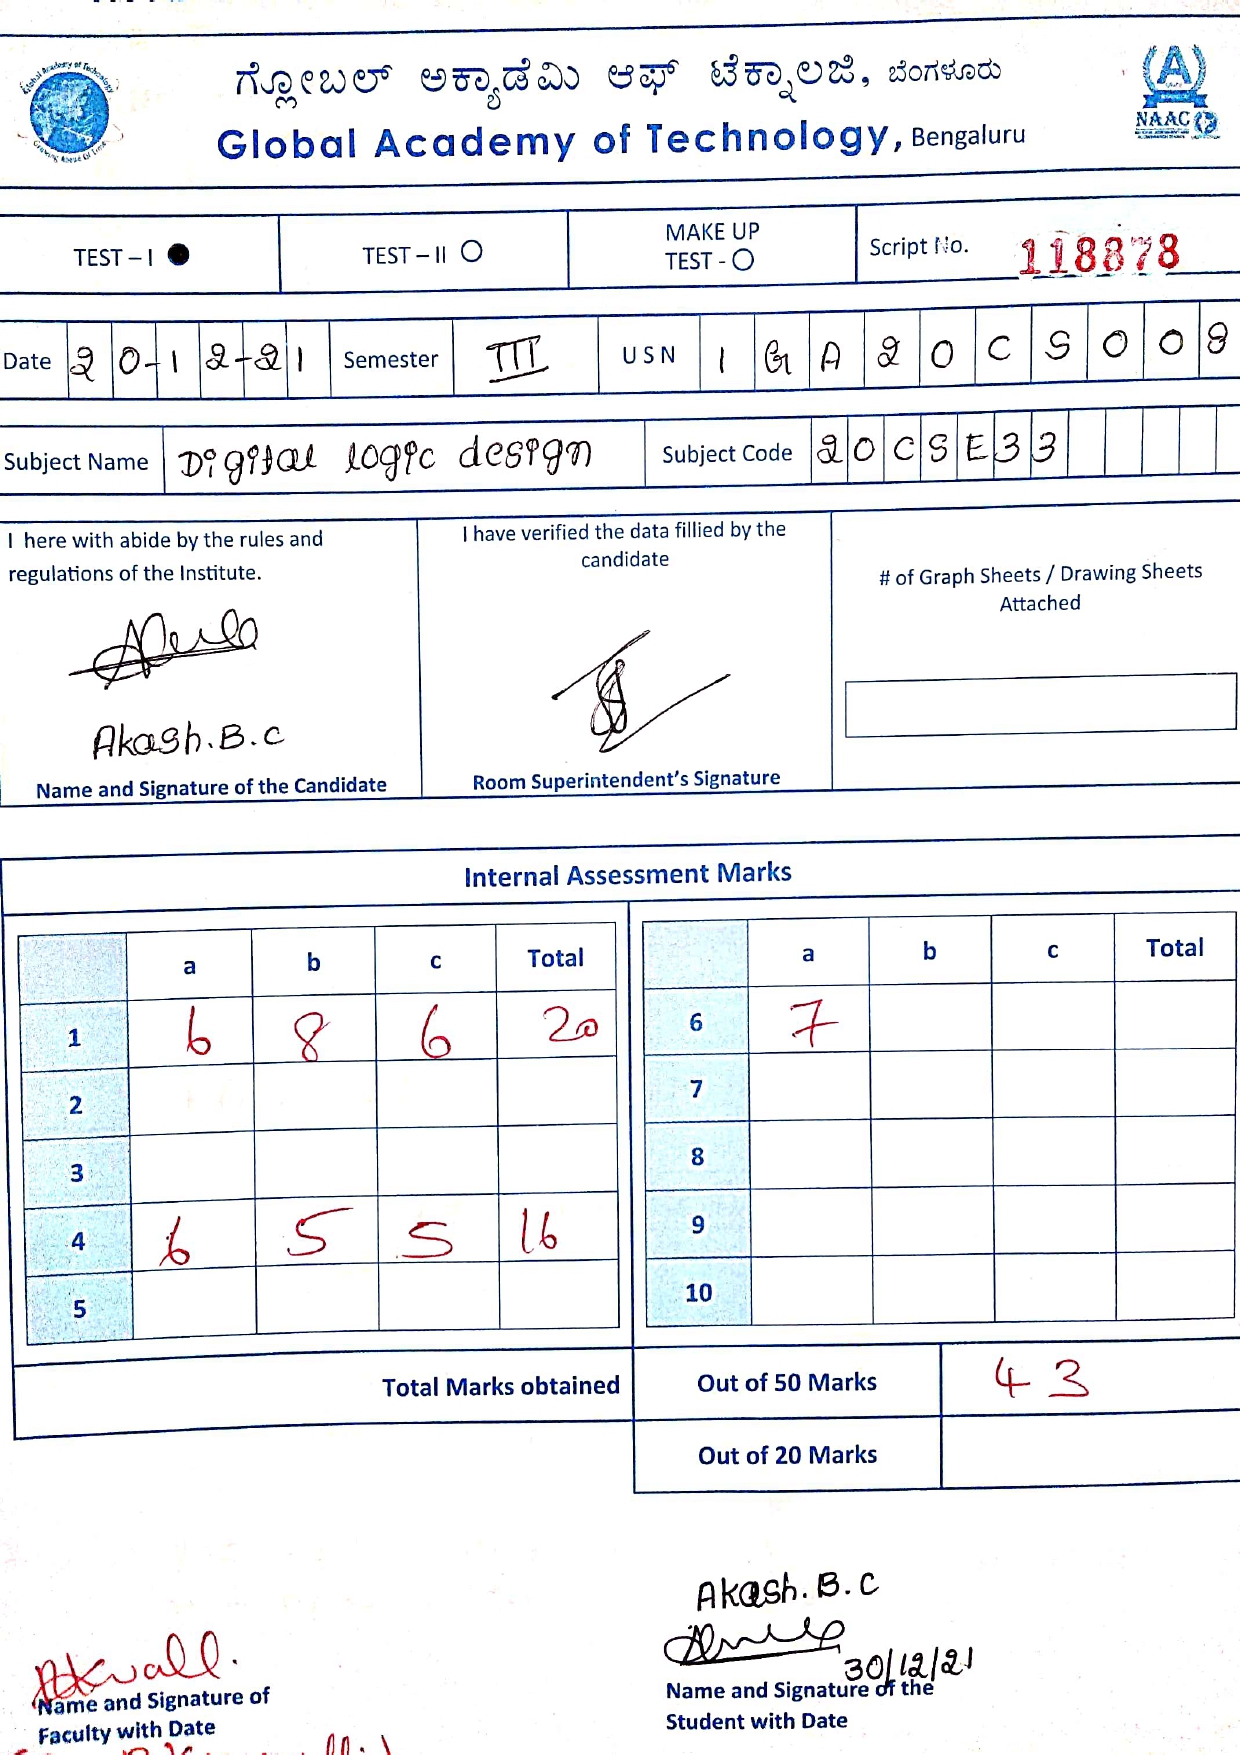 ಗ್ಲೋಬಲ್ ಅಕ್ಯಾಡೆಮಿ ಆಫ್ ಟೆಕ್ನಾಲಜಿ, ಬೆಂಗಳೂರು
Global Academy of Technology, Bengaluru
NAAC
TEST – I TEST – II MAKE UP TEST - Script No. 118878
Date 20-12-21 Semester III USN 1GA20CS008
Subject Name Digital logic design Subject Code 20CSE33
I here with abide by the rules and
regulations of the Institute.
Akash.B.C
Name and Signature of the Candidate
I have verified the data fillied by the
candidate
Room Superintendent's Signature
# of Graph Sheets / Drawing Sheets
Attached
Internal Assessment Marks
a b c Total a b c Total
1 6 8 6 20 6 7
2 7
3 8
4 6 5 5 16 9
5 10
Total Marks obtained Out of 50 Marks 43
Out of 20 Marks
Akash.B.C
30/12/21
Name and Signature of
Faculty with Date
Name and Signature of the
Student with Date